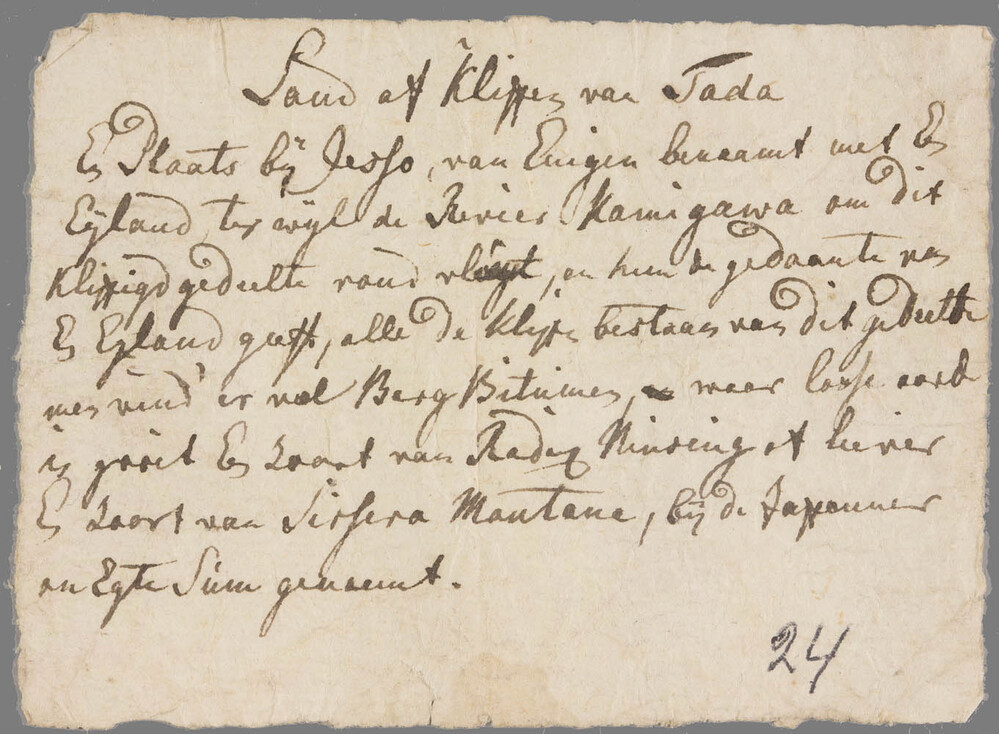 Land of Klippen van Tada
En Plaats bij Jesso, van Enigen benaamt met En
Eyland, terwijl de Revier Kamigawa om dit
Klippigd gedeelte rond vloeyt, en hem de gedaante van
En Eyland geeft, alle de Klippen bestaan van dit gedeelte
men vind er veel Berg Bitumen, waar losse aarde
in groeit En Zoort van Radix Ninsing of liever
En Zoort van Sissera Montana, bij de Japanner
on Egte Sum genaemt.
24